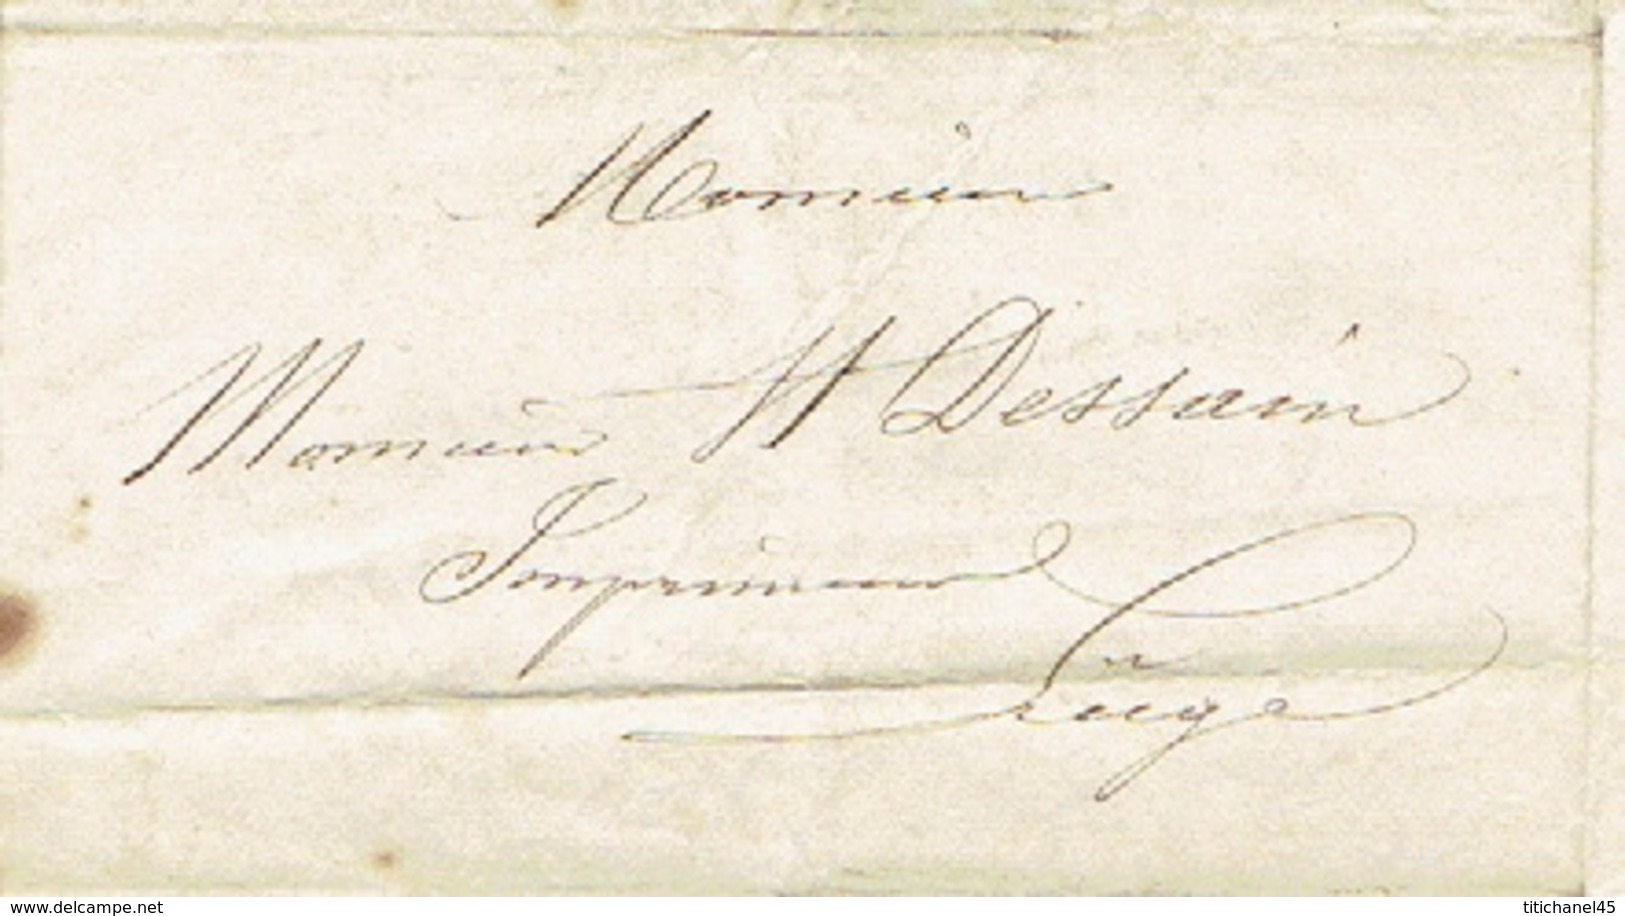 Monsieur
Monsieur H Dessain
Imprimeur
Liège
www.delcampe.net
titichanel45